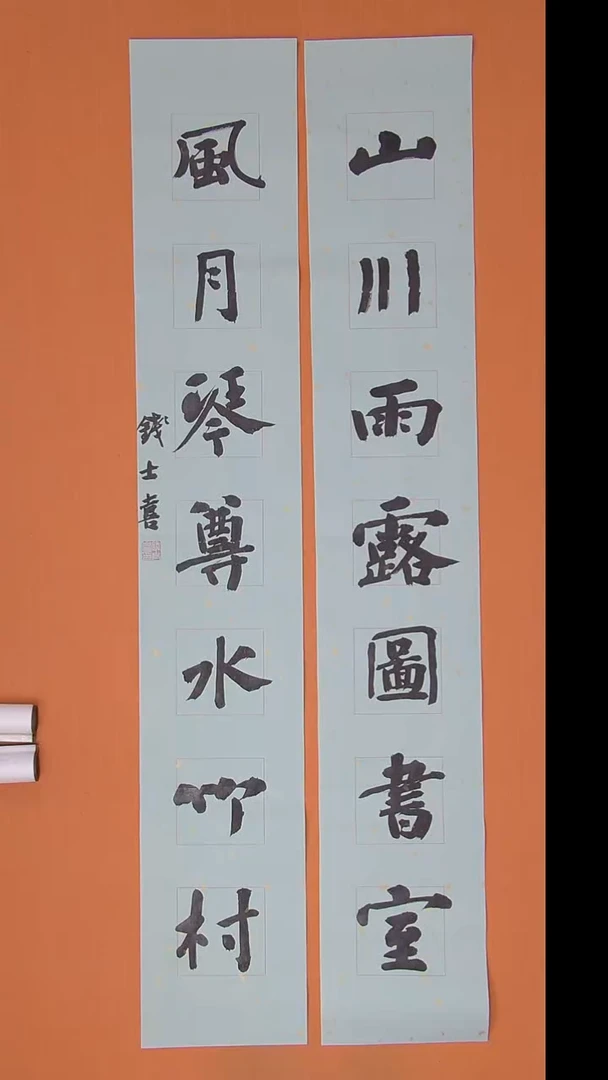 山川雨露圖書室
風月琴尊水竹村
錢士喜